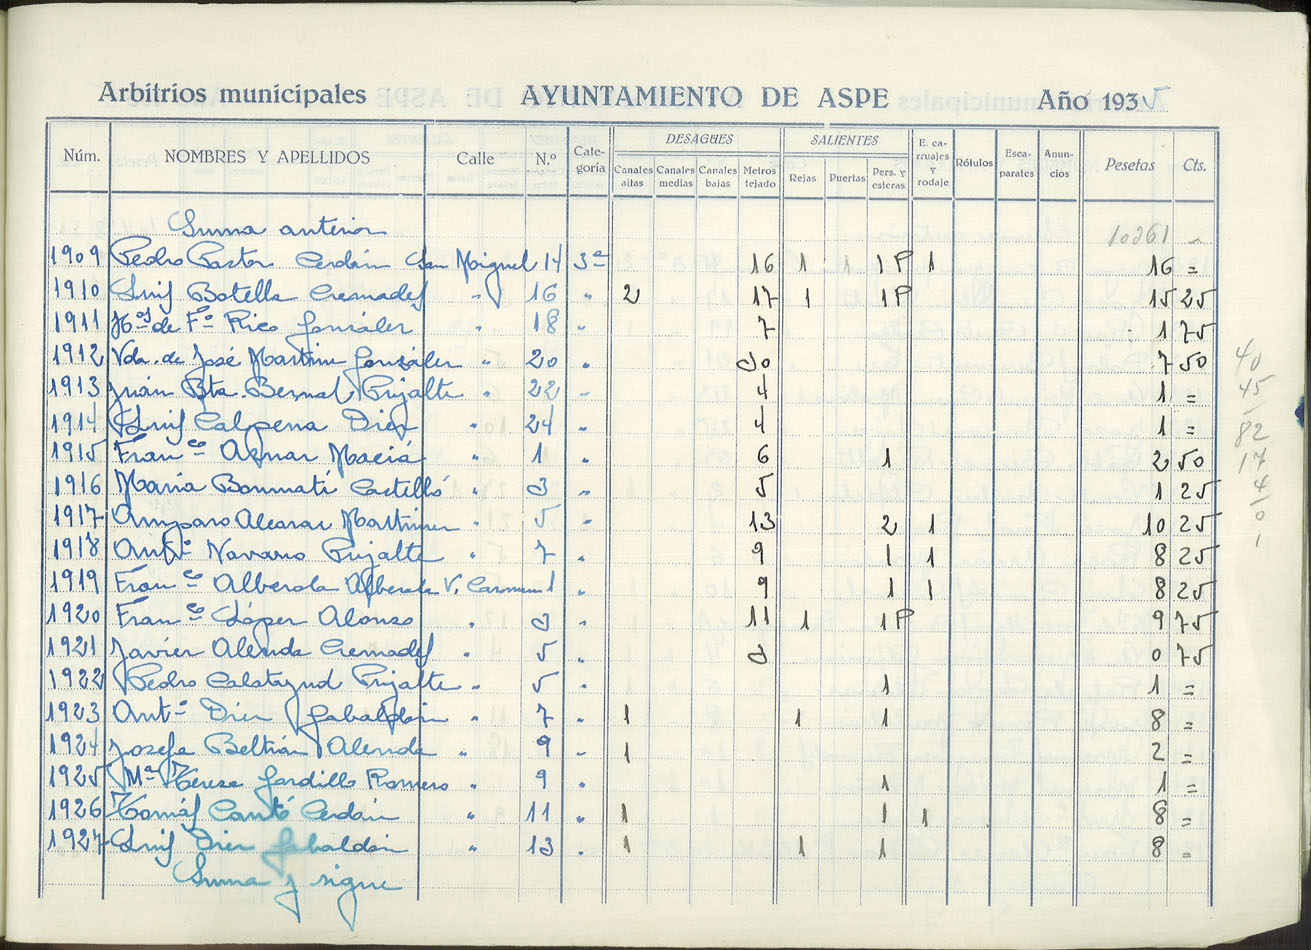 Arbitrios municipales AYUNTAMIENTO DE ASPE Año 1935
Núm. NOMBRES Y APELLIDOS Calle N.º Cate- goría DESAGÜES Canales altas Canales medias Canales bajas Metros tejado SALIENTES Rejas Puertas Pers. y esteras E. ca- rruajes y rodaje Rótulos Esca- parates Anun- cios Pesetas Cts.
Suma anterior 10261 "
1909 Pedro Pastor Cerdán San Miguel 14 3ª 16 1 1 1P 1 16 =
1910 Luis Botella Cremades " 16 " 2 17 1 1P 15 25
1911 Hºs de Fº Rico González " 18 " 7 1 75
1912 Vda. de José Martine González " 20 " 30 7 50
1913 Juán Bta. Bernal Prijalte " 22 " 4 1 =
1914 Luis Calpena Diez " 24 " 4 1 =
1915 Franᶜᵒ Aznar Maciá " 1 " 6 1 2 50
1916 María Bonmatí Castelló " 3 " 5 1 25
1917 Amparo Alcaraz Martinez " 5 " 13 2 1 10 25
1918 Antº Navarro Prijalte " 7 " 9 1 1 8 25
1919 Franᶜᵒ Alberola Alberola V. Carmen 1 " 9 1 1 8 25
1920 Franᶜᵒ López Alonso " 3 " 11 1 1P 9 75
1921 Javier Alenda Cremades " 5 " 3 0 75
1922 Pedro Calatayud Prijalte " 5 " 1 1 =
1923 Antº Diez Gabaldón " 7 " 1 1 1 8 =
1924 Josefa Beltrán Alenda " 9 " 1 2 =
1925 Mª Teresa Gordillo Romero " 9 " 1 1 =
1926 Tomás Cantó Cerdán " 11 " 1 1 1 8 =
1927 Luis Diez Gabaldón " 13 " 1 1 1 8 =
Suma y sigue
40
45
82
17